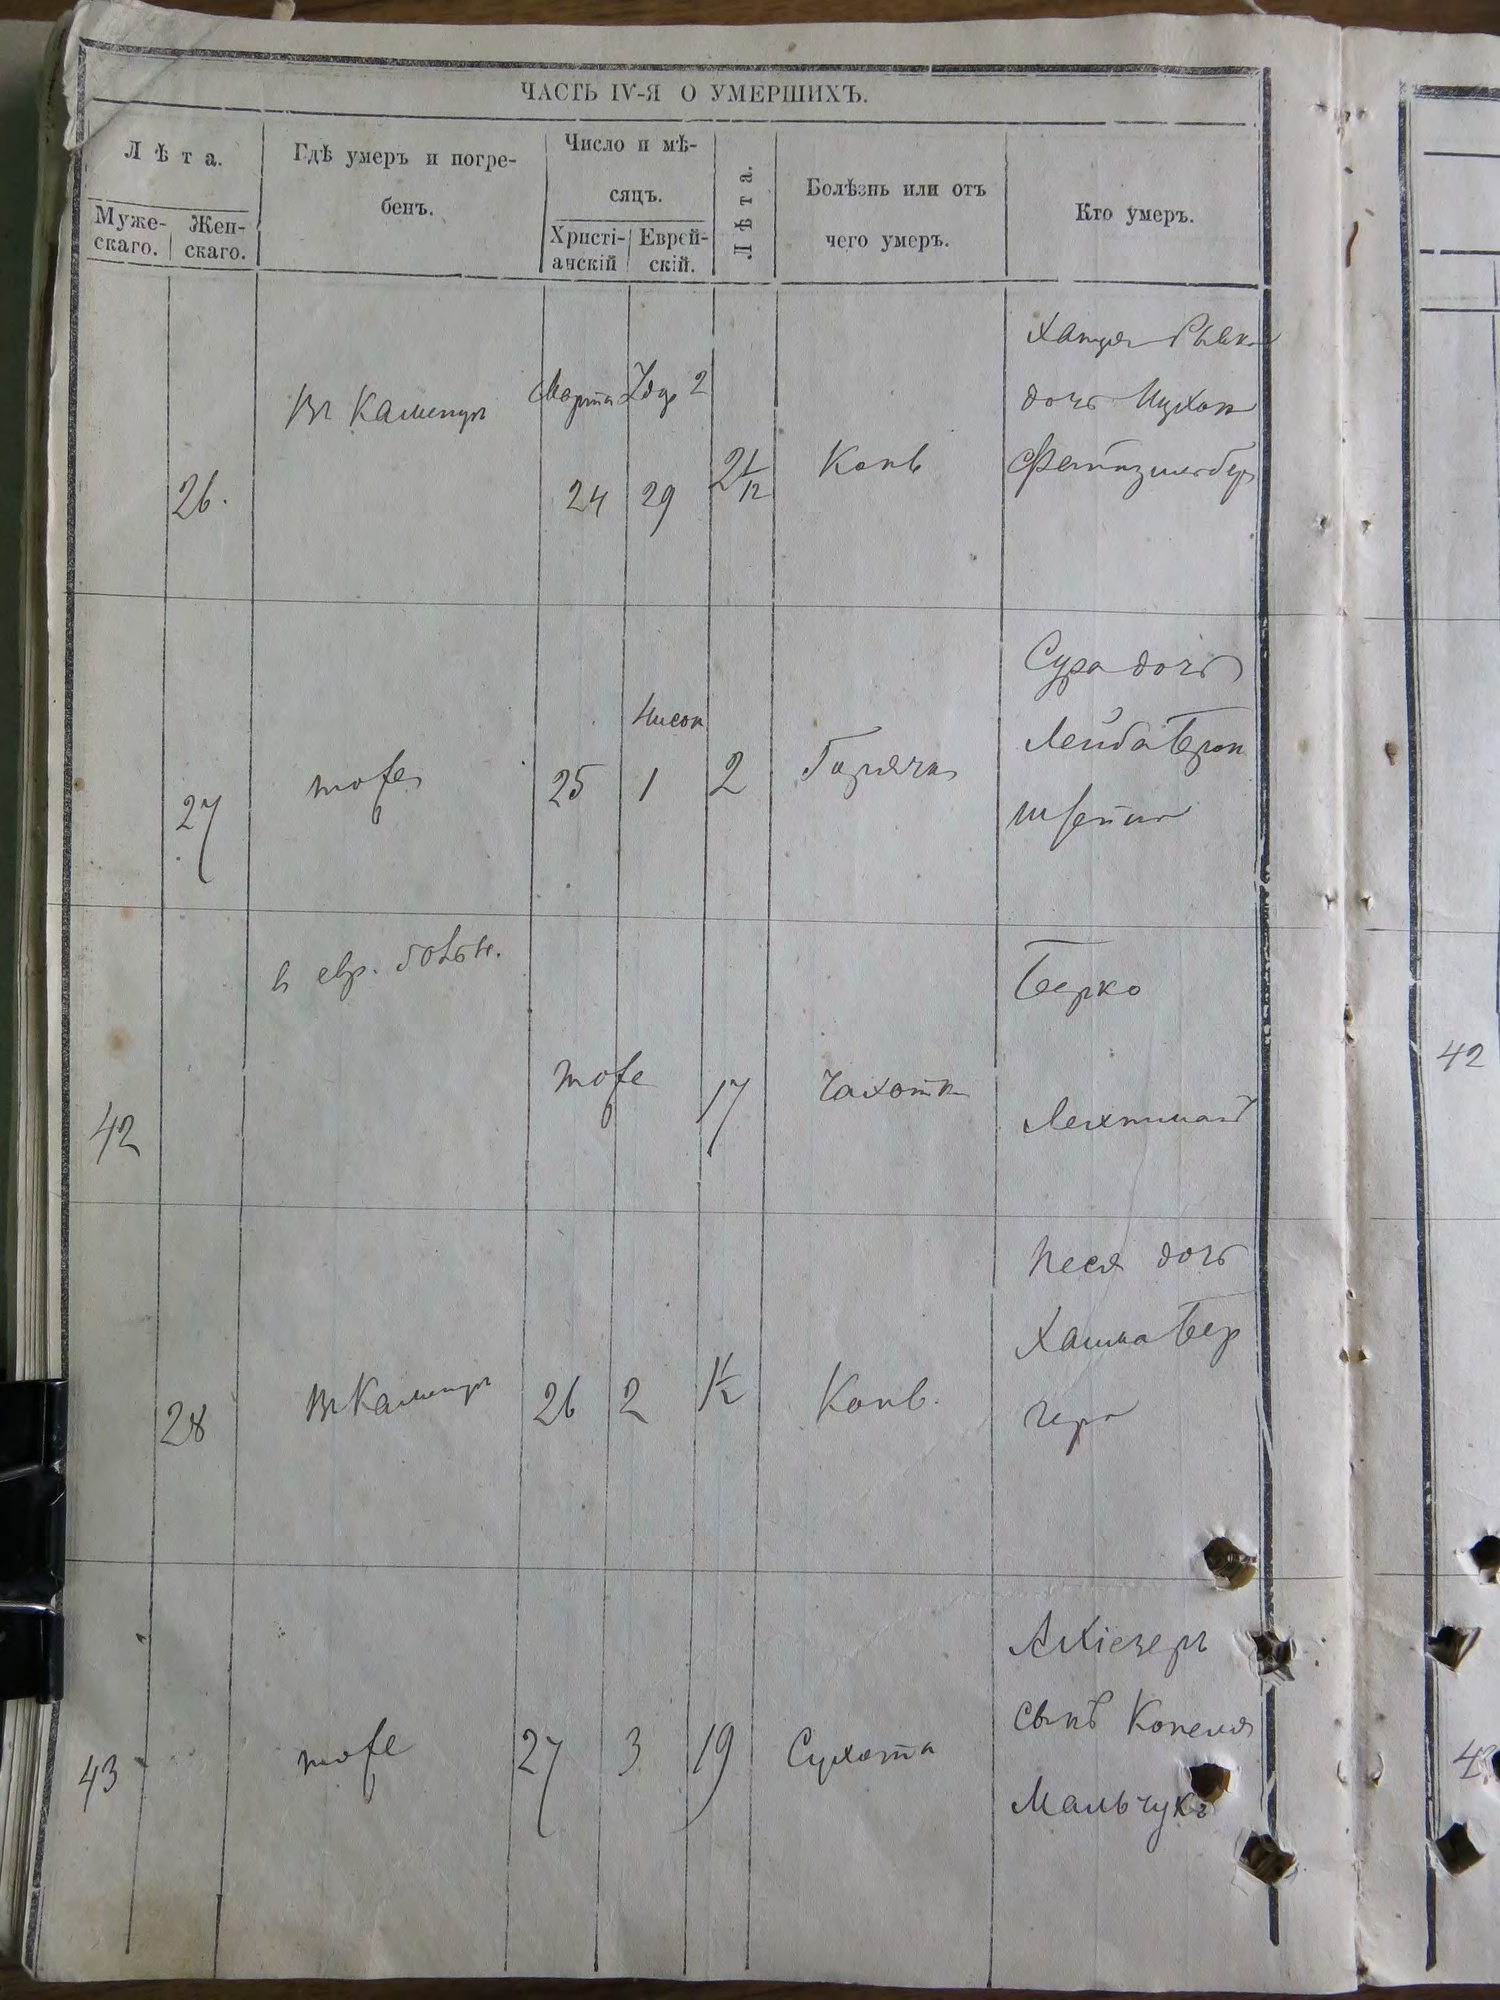 ЧАСТЬ IV-Я О УМЕРШИХЪ.
Лѣта.
Муже-
скаго.
Жен-
скаго.
Гдѣ умеръ и погре-
бенъ.
Число и мѣ-
сяцъ.
Христі-
анскій
Еврей-
скій.
Лѣта.
Болѣзнь или отъ
чего умеръ.
Кто умеръ.
26.
Въ Каменцѣ
Марта
24
Адр 2
29
2 1/12
Конв
Рывка
дочь Ицхока
Фейнзильбер
27
тоже
25
Нисон
1
2
Горячка
Сура дочь
Лейба Брон
штейна
42
в евр. больн.
тоже
17
Чахотка
Берко
Лехтман
28
Въ Каменцѣ
26
2
1/2
Конв.
Песя дочь
Хаима Бер
гера
43
тоже
27
3
19
Сухота
Ахіезеръ
сынъ Копеля
Мальчукъ
42
43